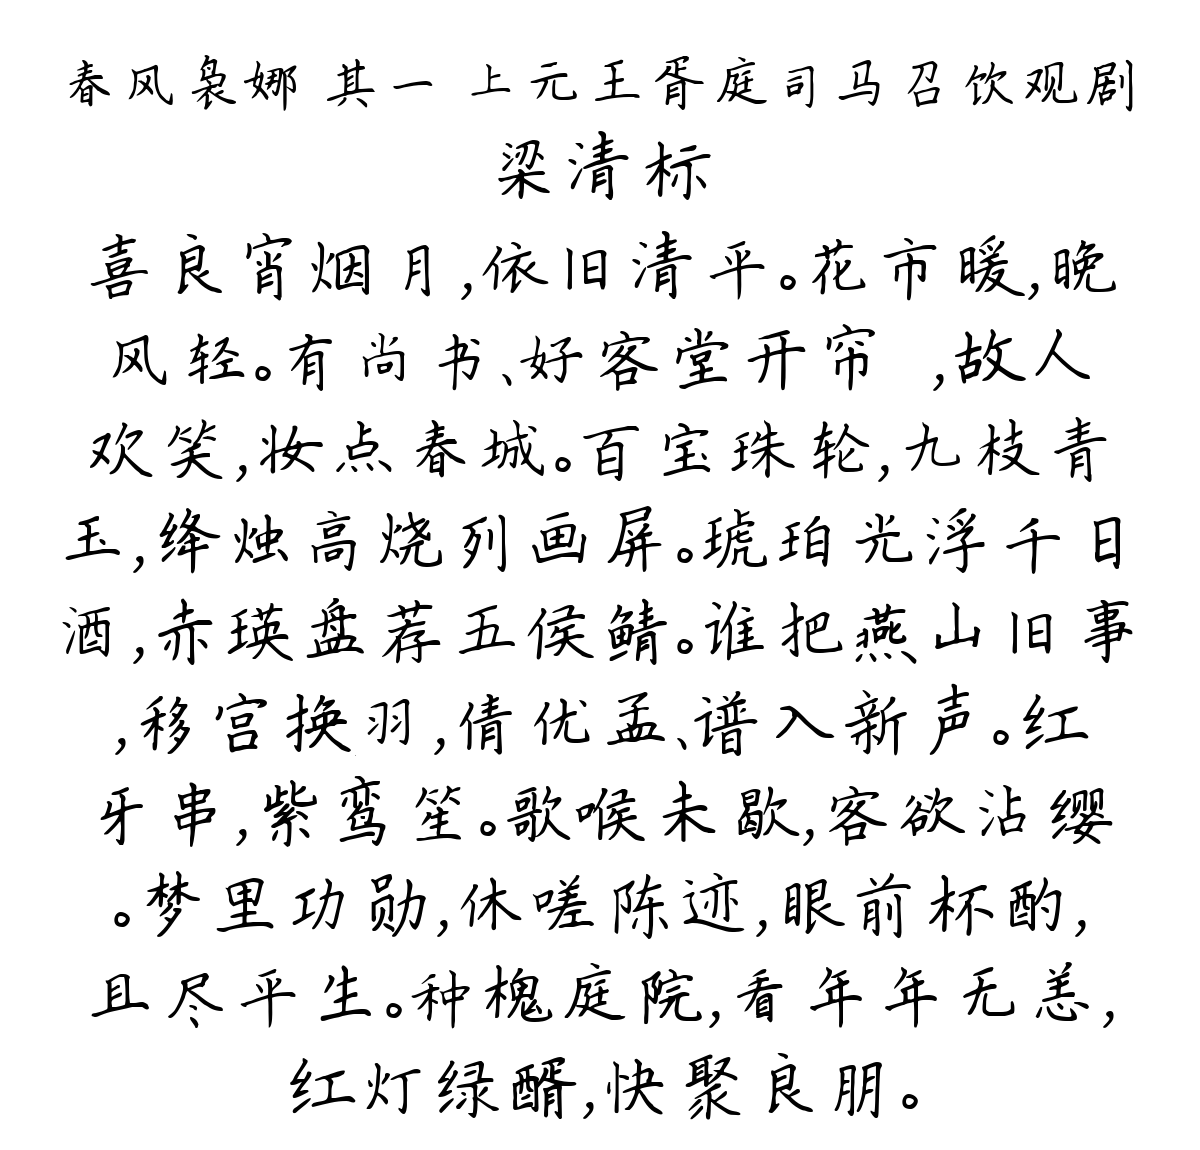 春风袅娜 其一 上元王胥庭司马召饮观剧
梁清标
喜良宵烟月,依旧清平。花市暖,晚
风轻。有尚书、好客堂开帘 ,故人
欢笑,妆点春城。百宝珠轮,九枝青
玉,绛烛高烧列画屏。琥珀光浮千日
酒,赤瑛盘荐五侯鲭。谁把燕山旧事
,移宫换羽,倩优孟、谱入新声。红
牙串,紫鸾笙。歌喉未歇,客欲沾缨
。梦里功勋,休嗟陈迹,眼前杯酌,
且尽平生。种槐庭院,看年年无恙,
红灯绿醑,快聚良朋。